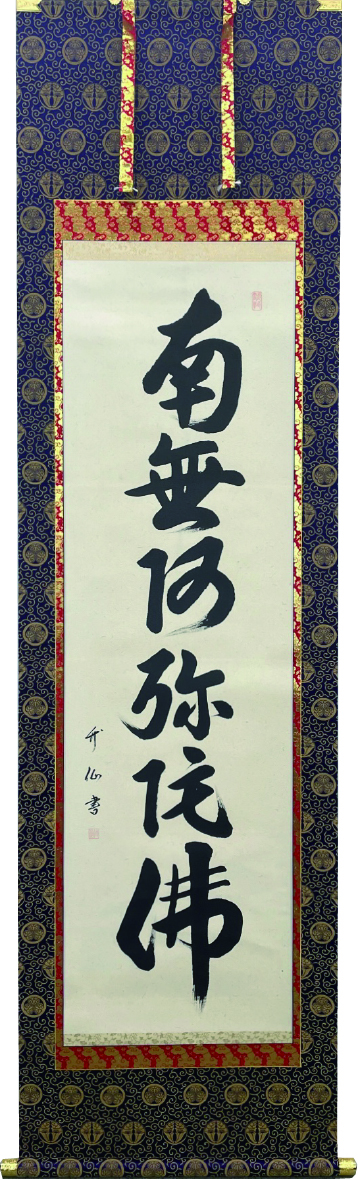 南無阿弥陀佛
竹仙書